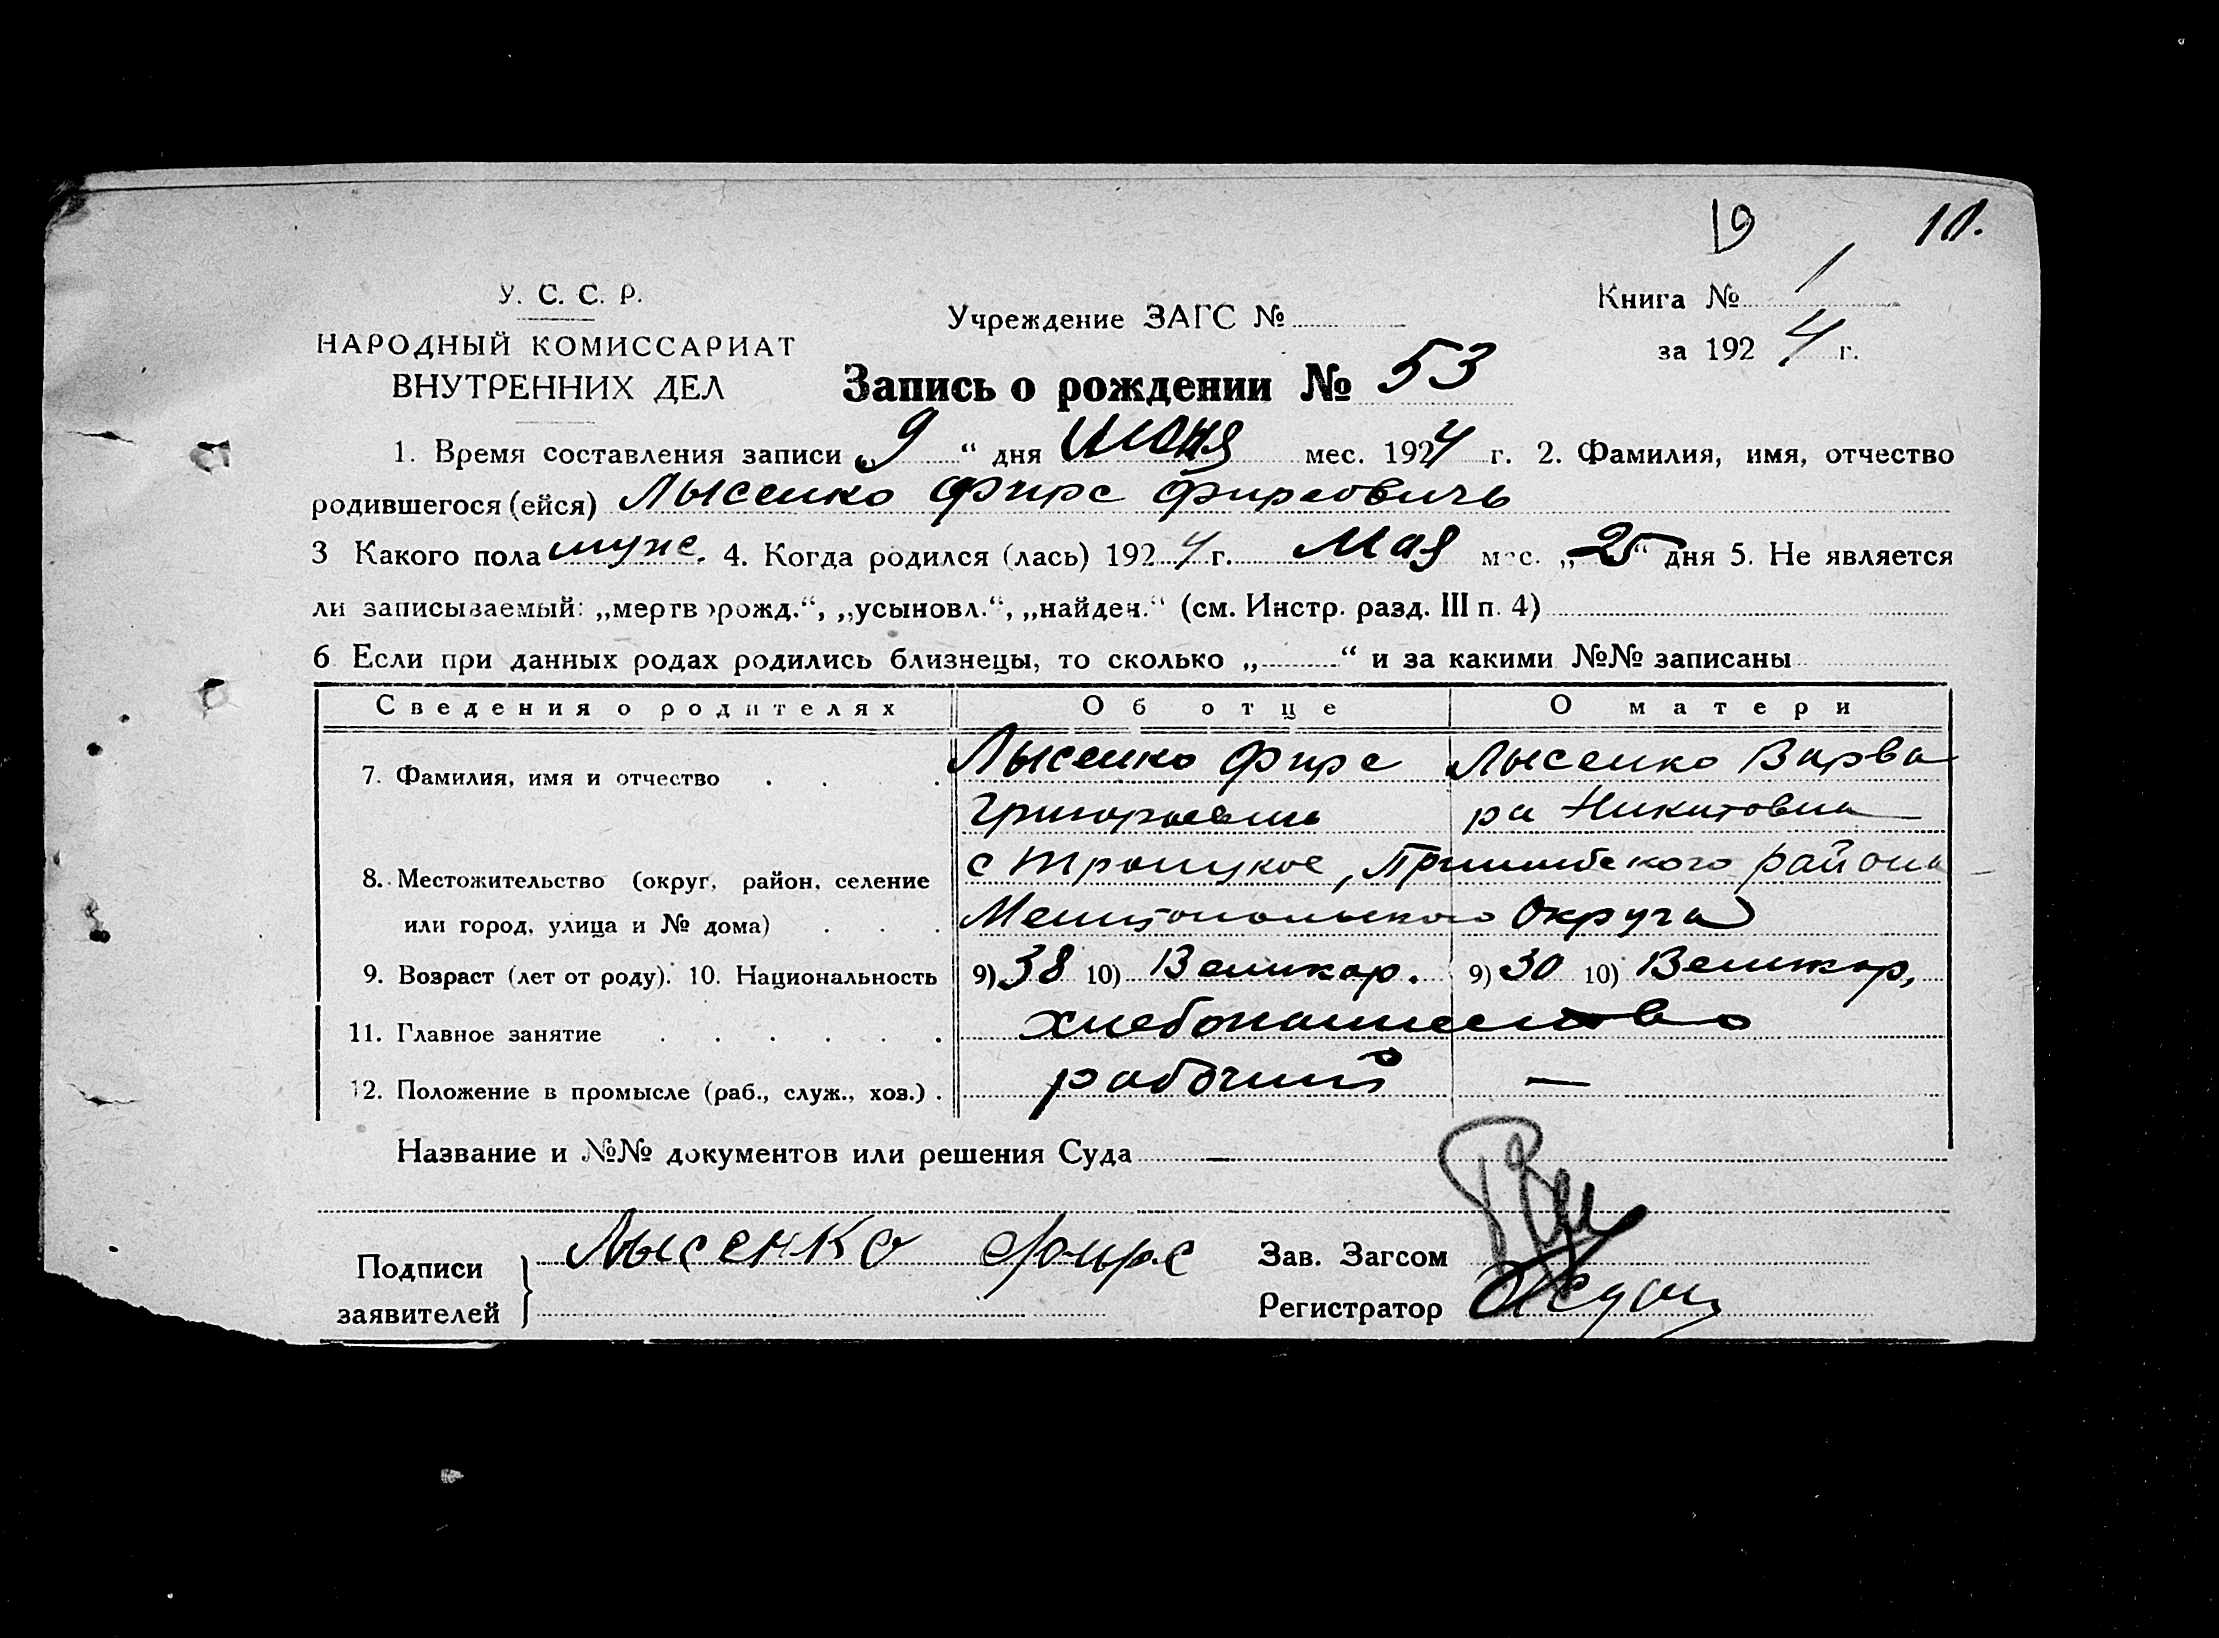 19 10.
У. С. С. Р.
НАРОДНЫЙ КОМИССАРИАТ
ВНУТРЕННИХ ДЕЛ
Учреждение ЗАГС №
Книга № 1
за 1924 г.
Запись о рождении № 53
1. Время составления записи „9“ дня Июня мес. 1924 г. 2. Фамилия, имя, отчество
родившегося (ейся) Лысенко Фирс Фирсовичь
3 Какого пола муже. 4. Когда родился (лась) 1924 г. Мая мес. „25“ дня 5. Не является
ли записываемый: „мертворожд.“, „усыновл.“, „найден.“ (см. Инстр. разд. III п. 4)
6 Если при данных родах родились близнецы, то сколько „ “ и за какими №№ записаны
Сведения о родителях Об отце О матери
7. Фамилия, имя и отчество Лысенко Фирс Лысенко Варва
Григорьевич ра Никитовна
8. Местожительство (округ, район, селение с Троицкое, Пришибского района
или город, улица и № дома) Мелитопольского Округа
9. Возраст (лет от роду). 10. Национальность 9) 38 10) Великор. 9) 30 10) Великор,
11. Главное занятие хлебопашество
12. Положение в промысле (раб., служ., хоз.) рабочий —
Название и №№ документов или решения Суда —
Подписи
заявителей
Лысенко Фирс
Зав. Загсом
Регистратор